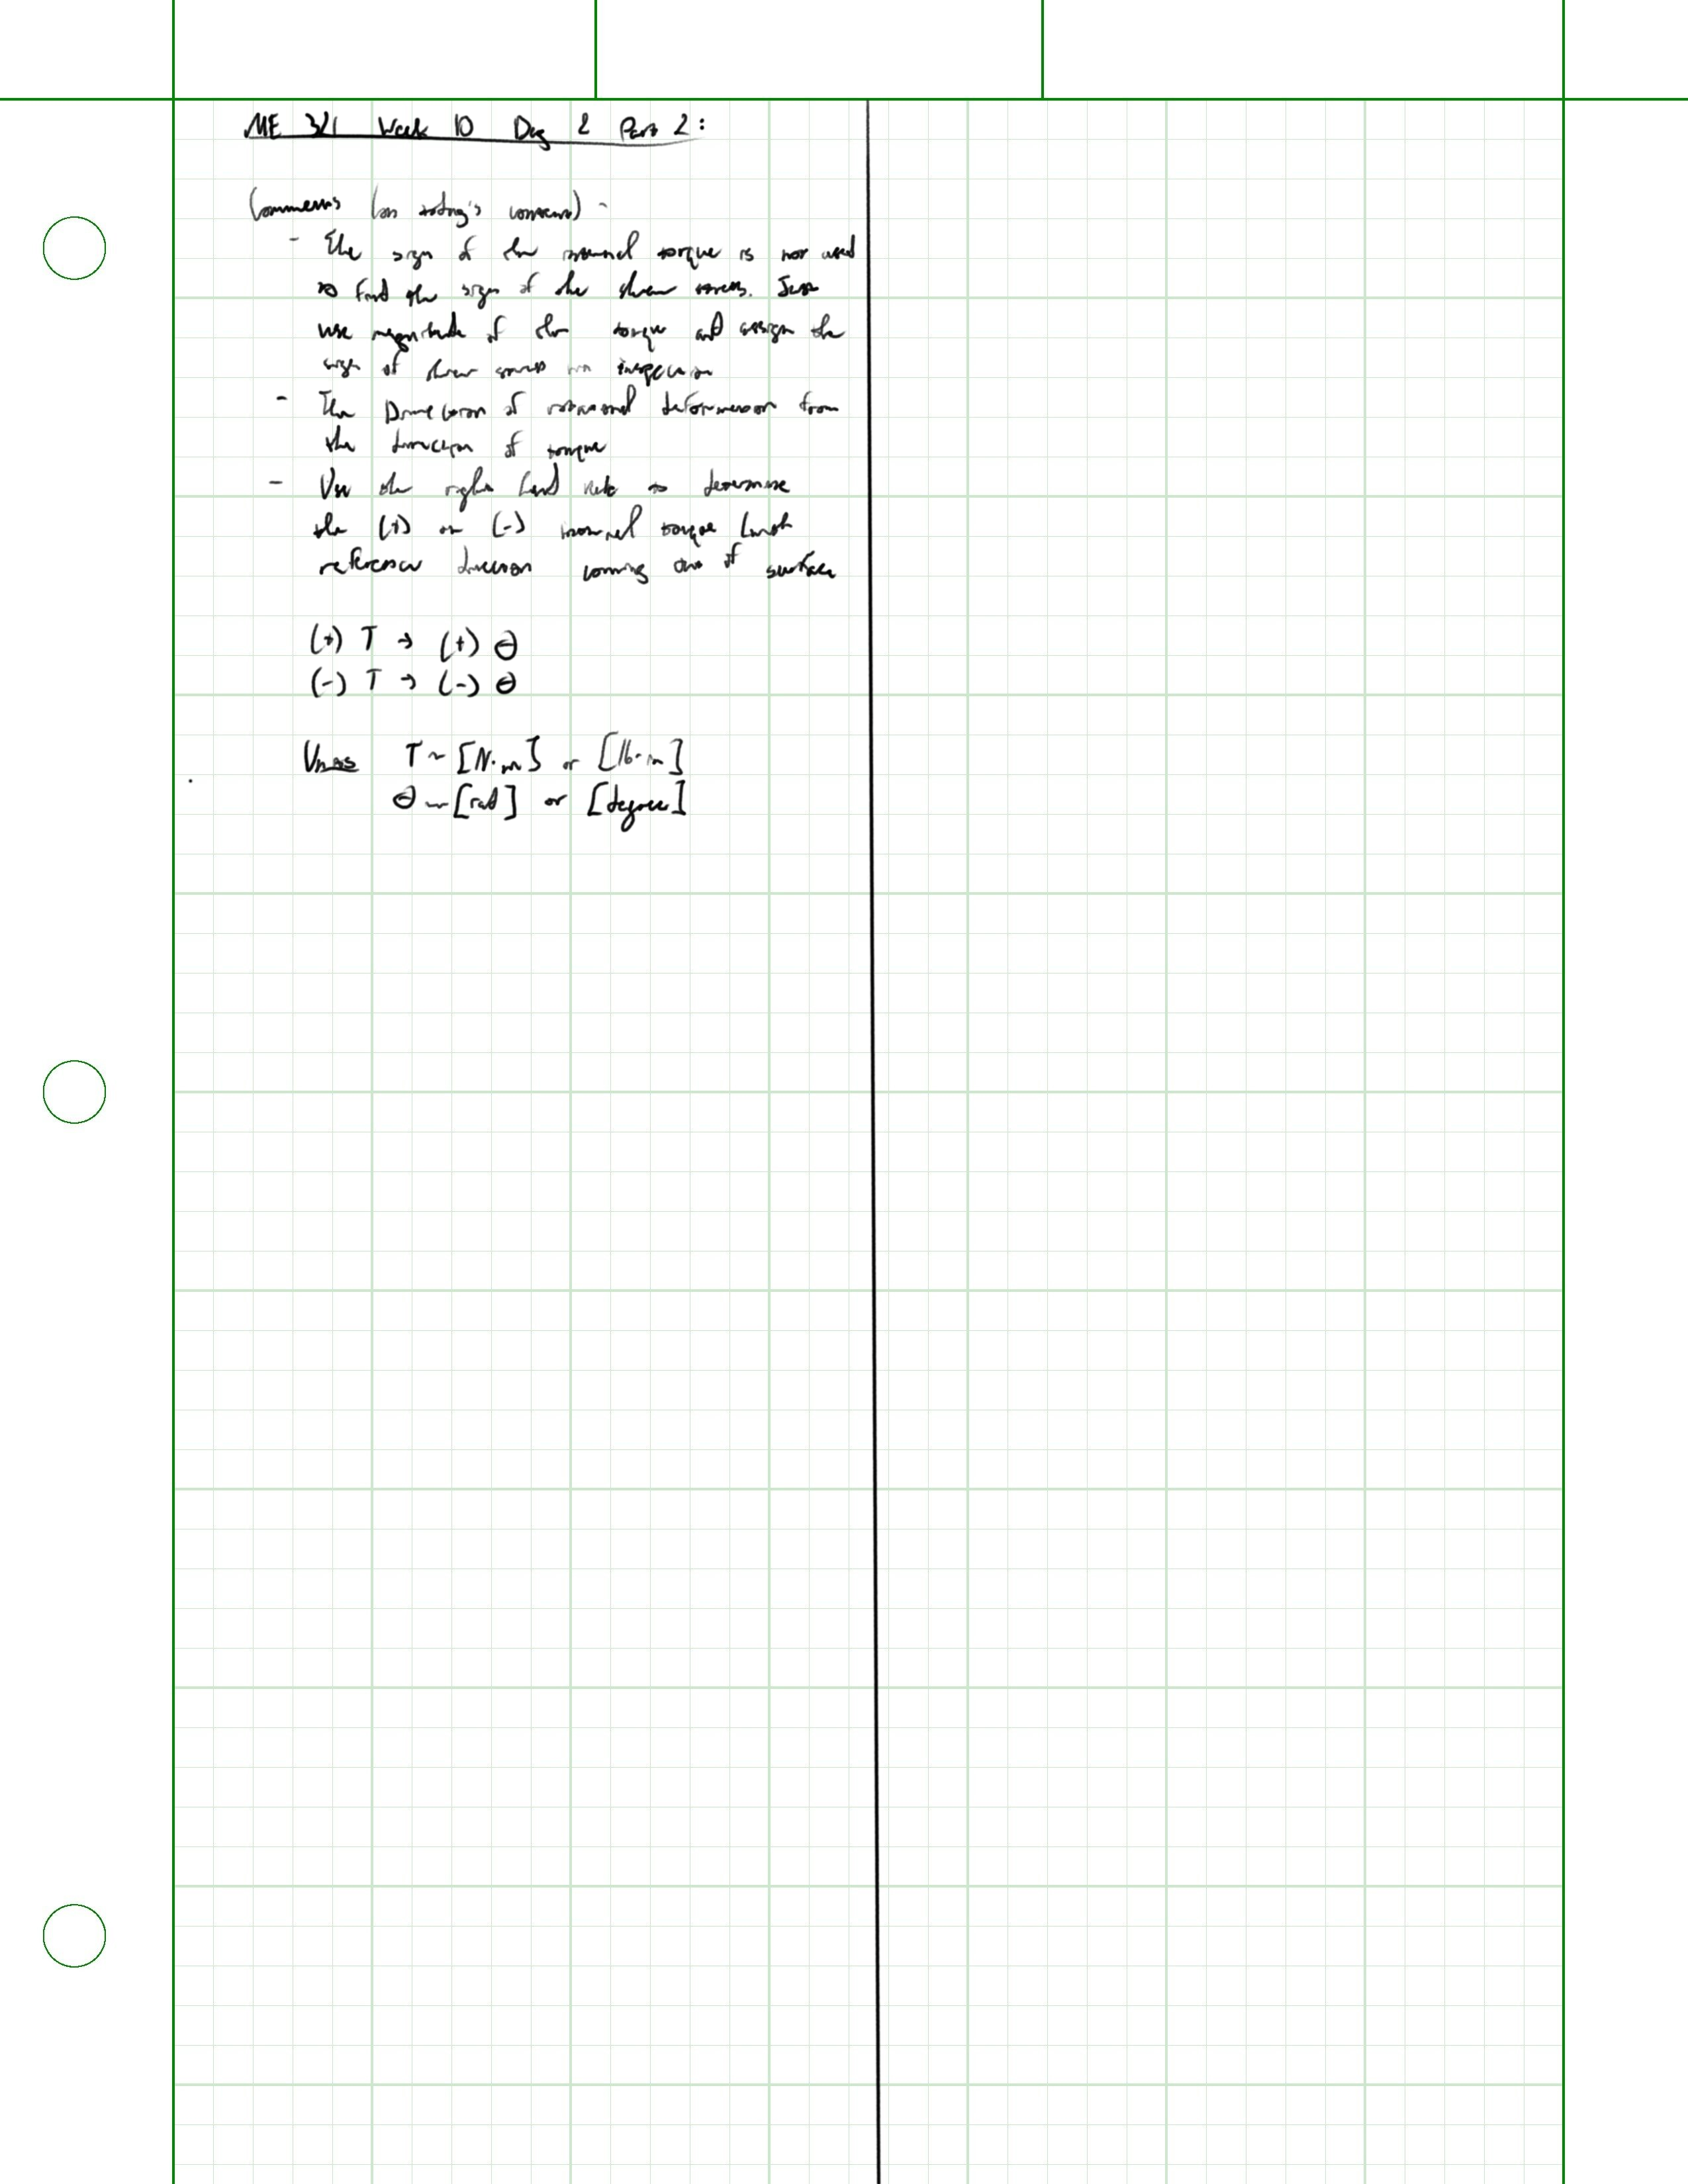 ME 321 Week 10 Day 2 Part 2:
Comments (on today's content) -
- The sign of the internal torque is not used
to find the sign of the shear stress. Just
use magnitude of the torque and assign the
sign of shear stress via inspection
- The Direction of rotational deformation from
the direction of torque
- Use the right hand rule to determine
the (+) or (-) internal torque (with
reference direction coming out of surface
(+) T → (+) θ
(-) T → (-) θ
Units T ~ [N·m] or [lb·in]
θ ~ [rad] or [degree]